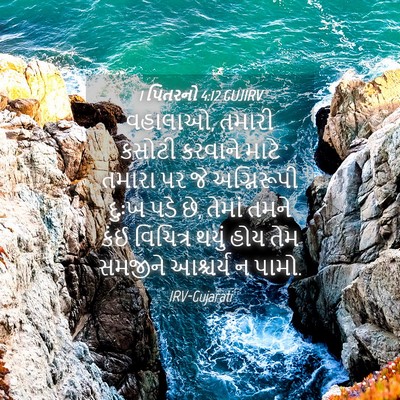 1 પિતરનો 4:12 GUJIRV
વહાલાઓ, તમારી
કસોટી કરવાને માટે
તમારા પર જે અગ્નિરૂપી
દુઃખ પડે છે, તેમાં તમને
કંઈ વિચિત્ર થયું હોય તેમ
સમજીને આશ્ચર્ય ન પામો.
IRV-Gujarati